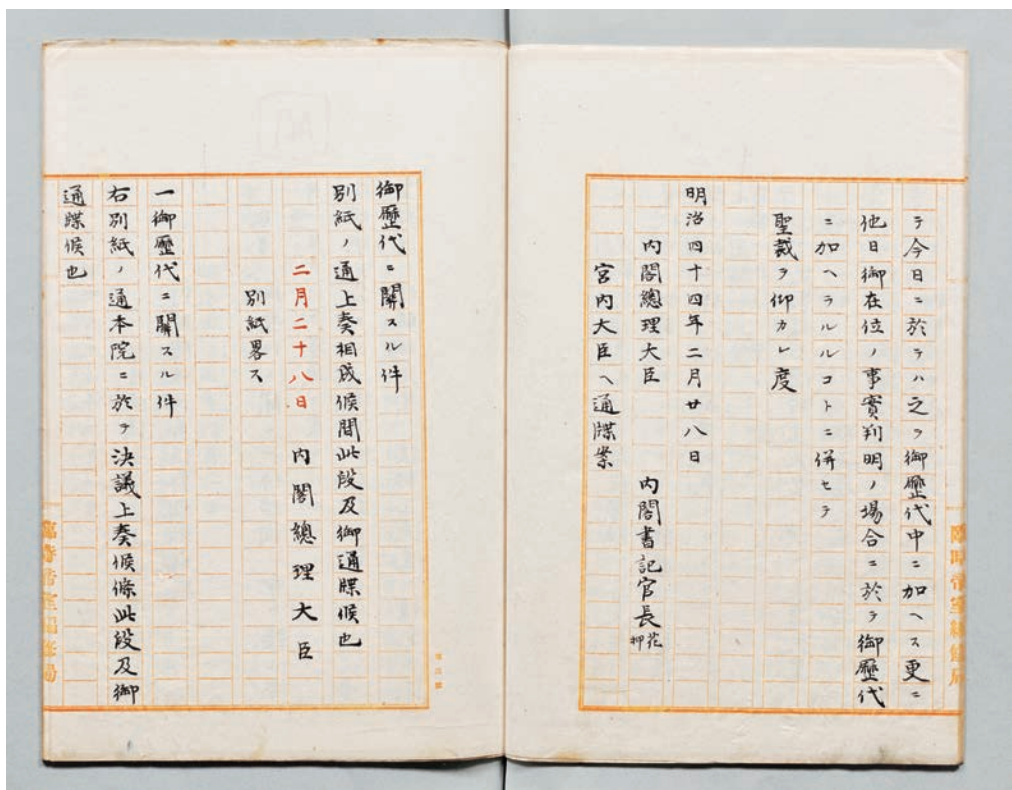 テ今日ニ於テハ之ヲ御歷代中ニ加ヘス更ニ
他日御在位ノ事實判明ノ場合ニ於テ御歷代
ニ加ヘラルルコトニ併セテ
聖裁ヲ仰カレ度
明治四十四年二月廿八日
內閣總理大臣 內閣書記官長 花押
宮內大臣ヘ通牒案
臨時帝室編修局
御歷代ニ關スル件
別紙ノ通上奏相成候間此段及御通牒候也
二月二十八日 內閣總理大臣
別紙畧ス
一御歷代ニ關スル件
右別紙ノ通本院ニ於テ決議上奏候條此段及御
通牒候也
臨時帝室編修局